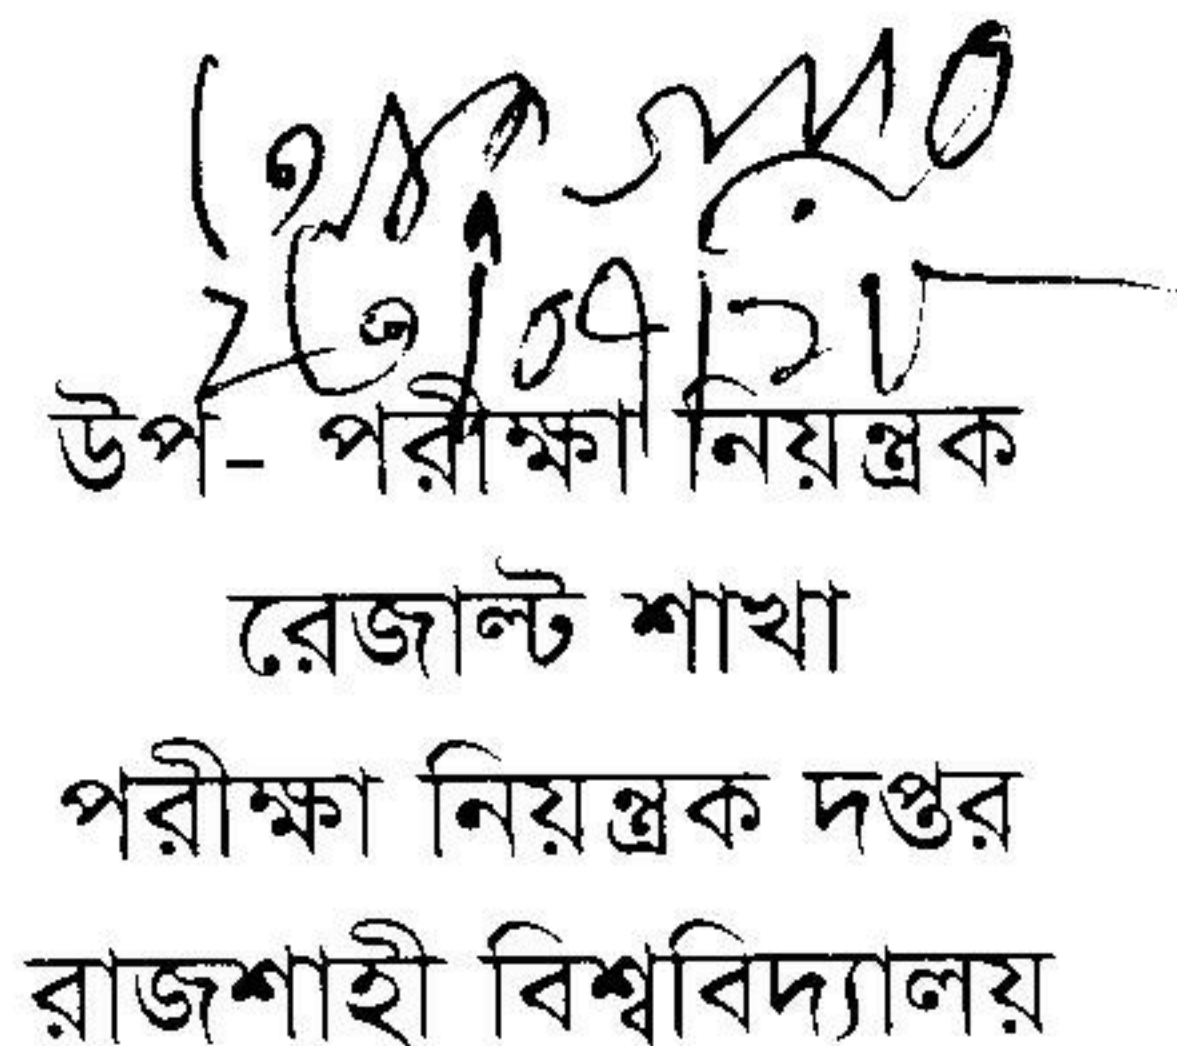 উপ- পরীক্ষা নিয়ন্ত্রক
রেজাল্ট শাখা
পরীক্ষা নিয়ন্ত্রক দপ্তর
রাজশাহী বিশ্ববিদ্যালয়